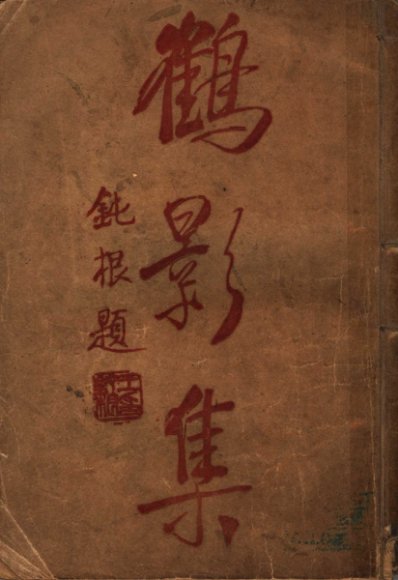 鶴影集
鈍根題